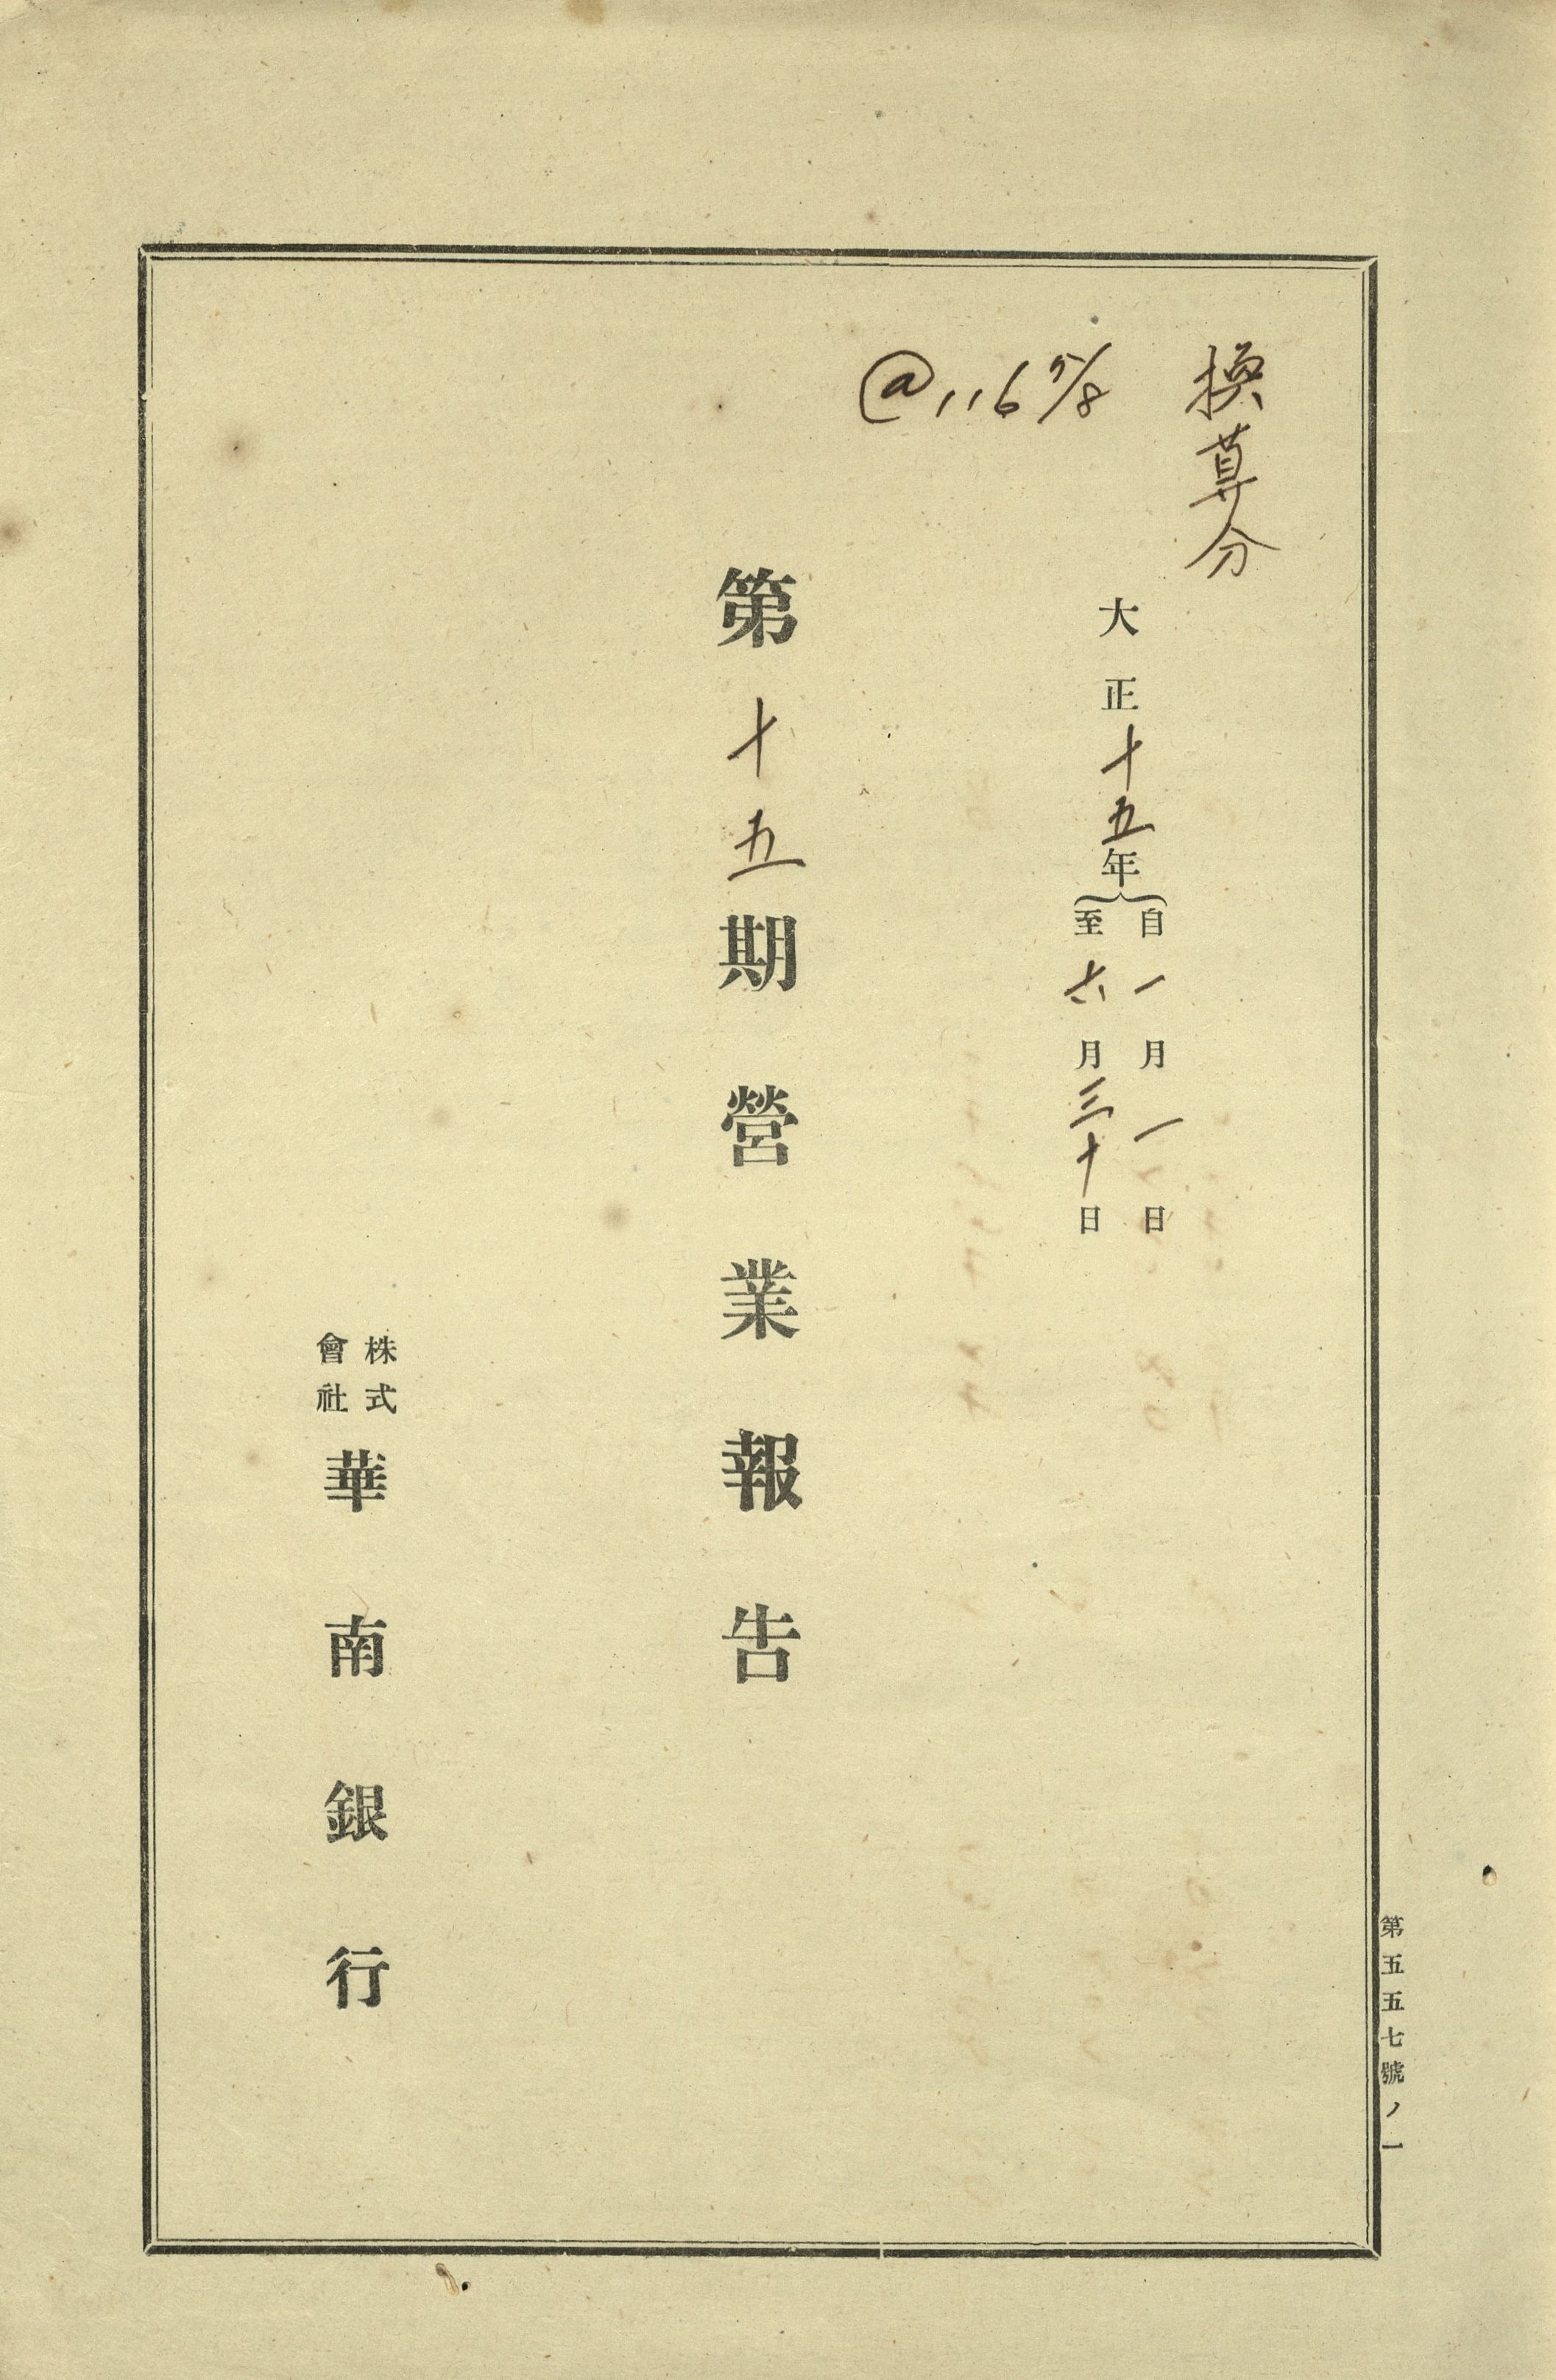 換算分
@116 5/8
大正十五年
自一月一日
至六月三十日
第十五期營業報告
株式會社
華南銀行
第五五七號ノ一